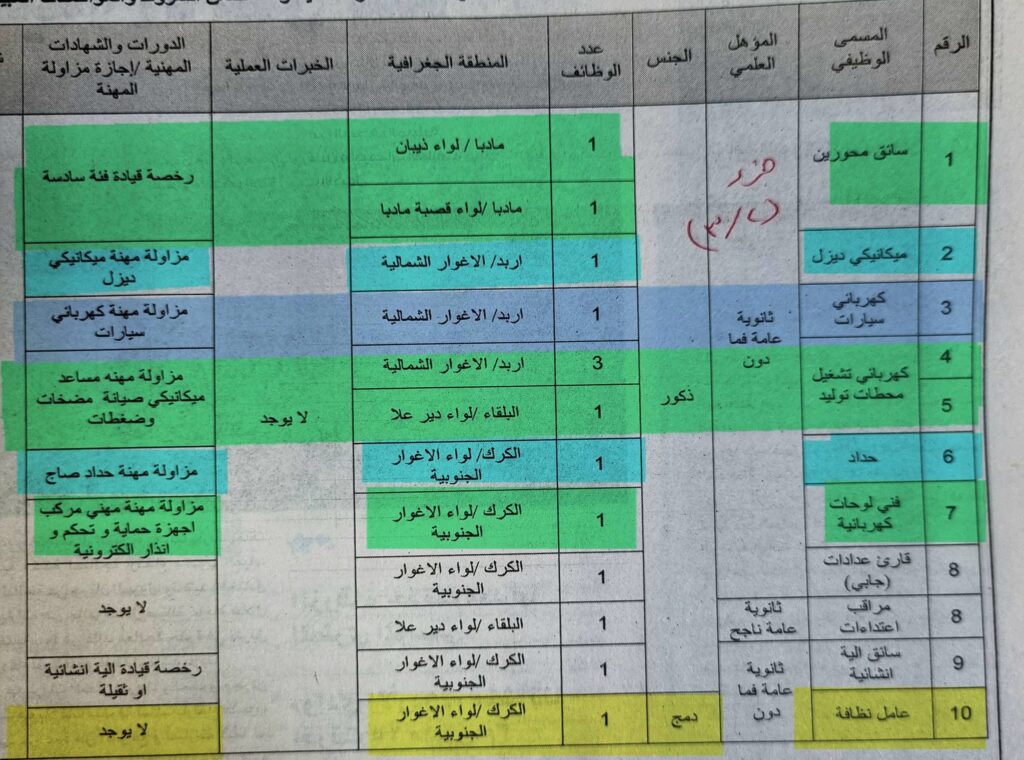 الرقم
المسمى
الوظيفي
المؤهل
العلمي
الجنس
عدد
الوظائف
المنطقة الجغرافية
الخبرات العملية
الدورات والشهادات
المهنية /إجازة مزاولة
المهنة
1
سائق محورين
1
مادبا / لواء ذيبان
رخصة قيادة فئة سادسة
1
مادبا /لواء قصبة مادبا
2
ميكانيكي ديزل
1
اربد/ الاغوار الشمالية
مزاولة مهنة ميكانيكي
ديزل
3
كهربائي
سيارات
ثانوية
عامة فما
دون
1
اربد/ الاغوار الشمالية
مزاولة مهنة كهربائي
سيارات
4
كهربائي تشغيل
محطات توليد
ذكور
3
اربد/ الاغوار الشمالية
لا يوجد
مزاولة مهنه مساعد
ميكانيكي صيانة مضخات
وضغطات
5
1
البلقاء /لواء دير علا
6
حداد
1
الكرك/ لواء الاغوار
الجنوبية
مزاولة مهنة حداد صاج
7
فني لوحات
كهربائية
1
الكرك /لواء الاغوار
الجنوبية
مزاولة مهنة مهني مركب
اجهزة حماية و تحكم و
انذار الكترونية
8
قارئ عدادات
(جابي)
1
الكرك /لواء الاغوار
الجنوبية
لا يوجد
8
مراقب
اعتداءات
ثانوية
عامة ناجح
1
البلقاء /لواء دير علا
9
سائق الية
انشائية
ثانوية
عامة فما
دون
1
الكرك /لواء الاغوار
الجنوبية
رخصة قيادة الية انشائية
او ثقيلة
10
عامل نظافة
دمج
1
الكرك /لواء الاغوار
الجنوبية
لا يوجد